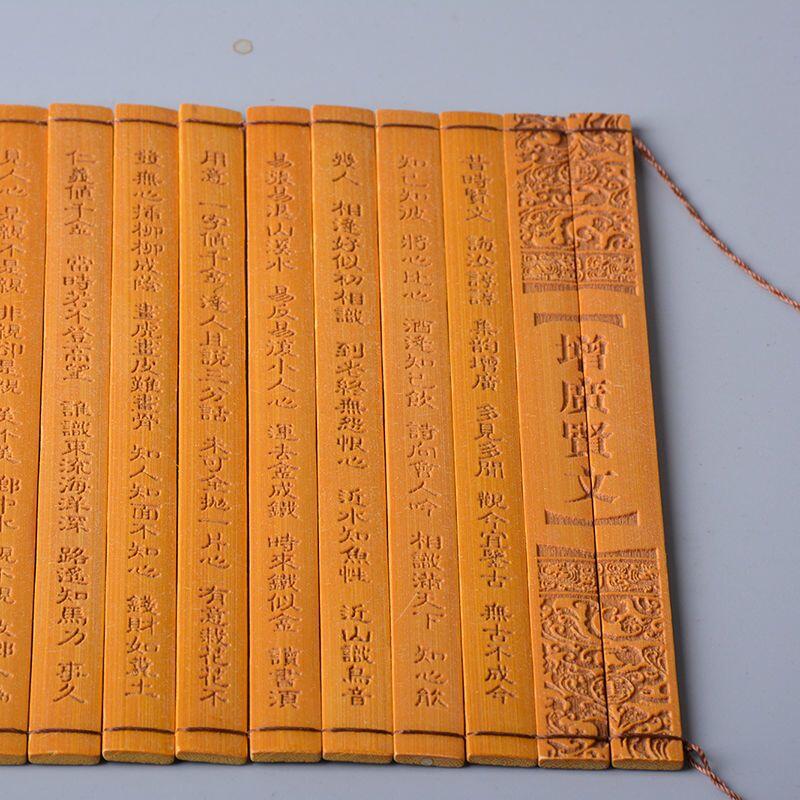 增廣賢文
昔時賢文 誨汝諄諄 集韵增廣 多見多聞 觀今宜鑒古 無古不成今
知己知彼 將心比心 酒逢知己飲 詩向會人吟 相識滿天下 知心能
幾人 相逢好似初相識 到老終無怨恨心 近水知魚性 近山識鳥音
易漲易退山溪水 易反易復小人心 運去金成鐵 時來鐵似金 讀書須
用意 一字值千金 逢人且說三分話 未可全抛一片心 有意栽花花不
發無心插柳柳成陰 畫虎畫皮難畫骨 知人知面不知心 錢財如糞土
仁義值千金 當時若不登高望 誰識東流海洋深 路遙知馬力 事久
見人心 是親不是親 非親卻是親 美不美 鄉中水 親不親 故鄉人